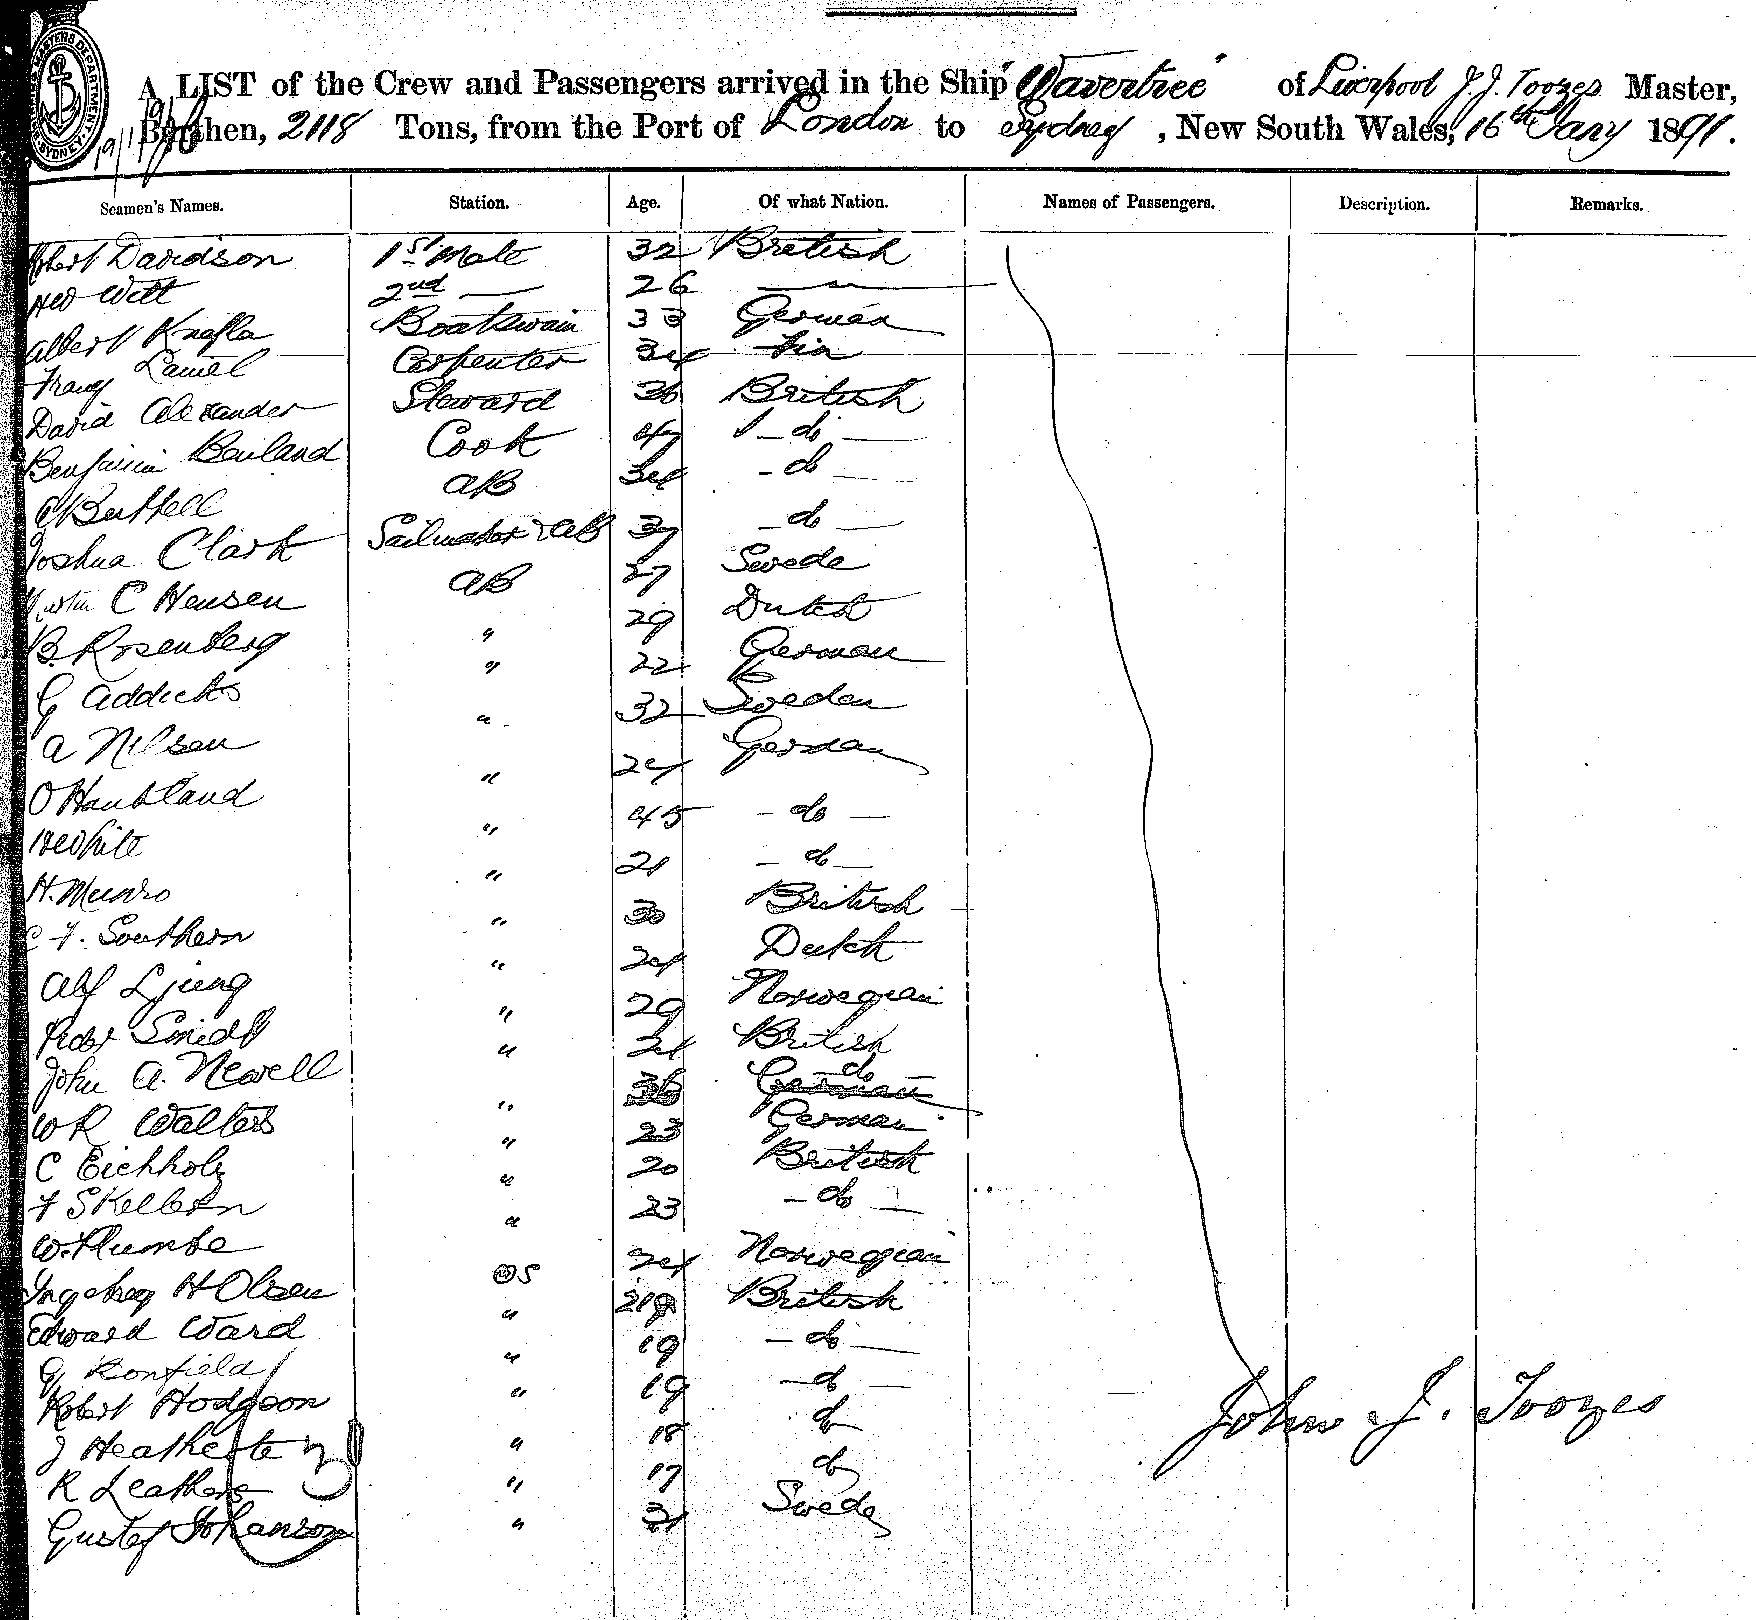 A LIST of the Crew and Passengers arrived in the Ship "Wavertree" of Liverpool J. J. Toozes Master,
Burthen, 2118 Tons, from the Port of London to Sydney, New South Wales, 16th Jany 1891.
Seamen's Names. Station. Age. Of what Nation. Names of Passengers. Description. Remarks.
Robert Davidson 1st Mate 32 British
Witt 2nd — 26 — " —
Albert Knafla Boatswain 33 German
Franz Laniel Carpenter 34 Fin
David Alexander Steward 36 British
Benjamin Bailand Cook 47 - do -
Buttell AB 34 - do -
Joshua Clark Sailmaker & AB 37 - do -
C Hensen AB 27 Swede
B. Rosenberg " 29 Dutch
G Addicks " 22 German
A Nilsen " 32 Sweden
O Haubland " 24 German
White " 45 - do -
H. Munro " 21 - do -
F. Southern " 30 British
Alf Ljung " 24 Dutch
Peder Smidt " 29 Norwegian
John A. Newell " 21 British
W R Walters " 36 do German
C Eichholz " 23 German
F Skellern " 20 British
W. Plumbe " 23 - do -
H Olsen OS 24 Norwegian
Edward Ward " British
G Ronfield " 19 - do -
Robert Hodgson " 19 - do -
J Heathcote " 18 do
R Leathers " 17 do
Gustaf Johanson " 21 Swede
John J. Toozes